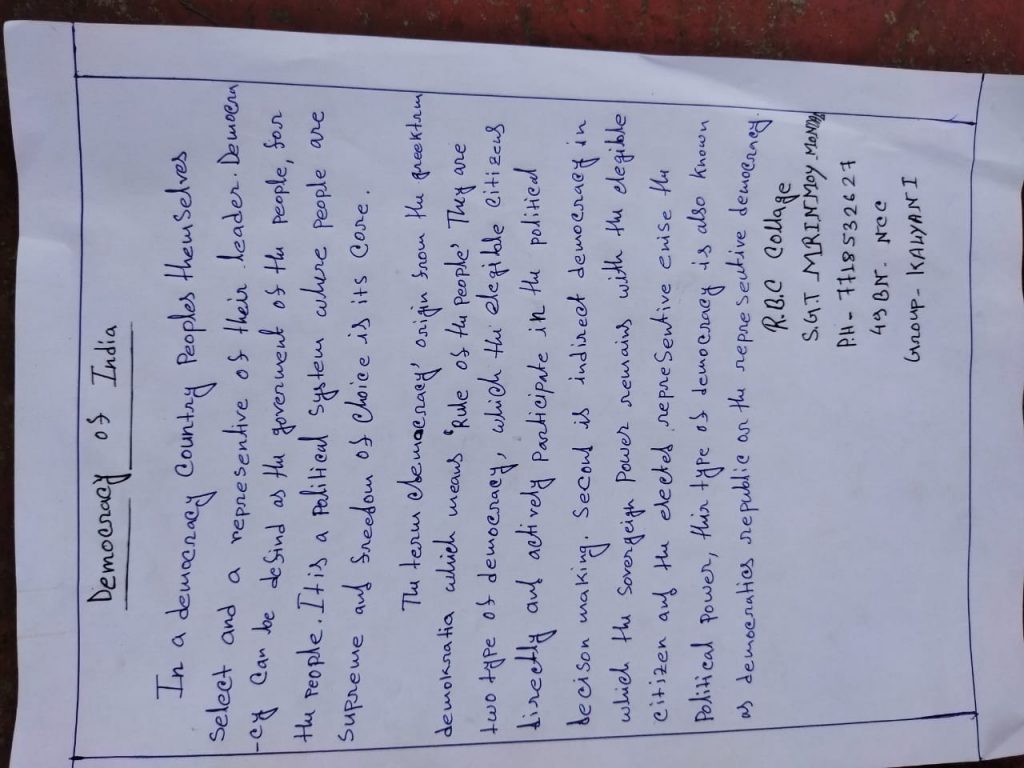 Democracy of India
In a democracy country Peoples themselves
select and a representive of their leader. Democra
-cy can be defind as the goverment of the people, for
the people. It is a Political System where people are
supreme and freedom of choice is its core.
The term democracy, origin from the greek trm
demokratia which means 'Rule of the people'. They are
two type of democracy, which the elegible citizens
directly and actively participate in the political
decison making. Second is indirect democracy in
which the sovereigh Power remains with the elegible
citizen and the elected representive enise the
Political Power, this type of democracy is also known
as democratics republic or the representive democracy.
R.B.C Collage
SGT MRINMOY MONDAL
PH- 7718532627
49 BN. NCC
Group- KALYANI